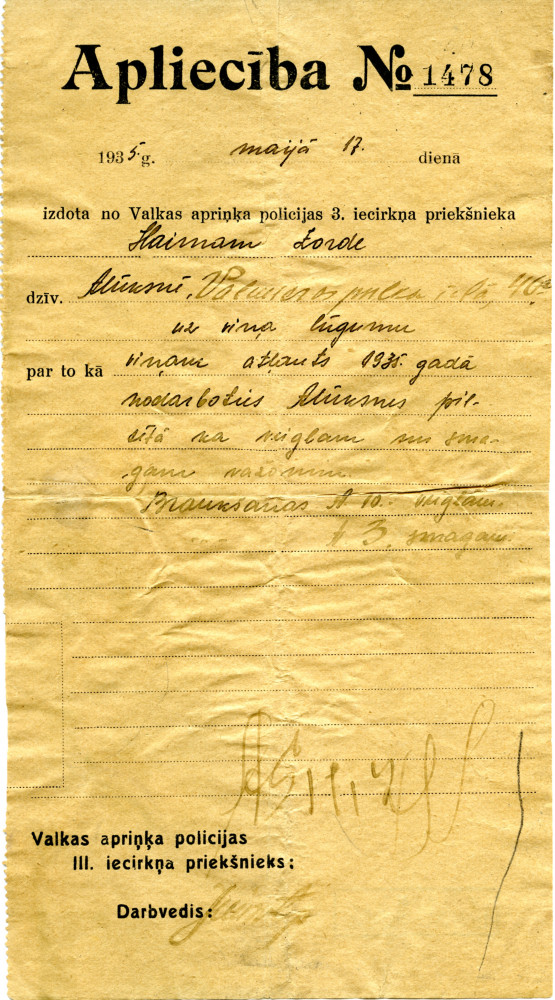 Apliecība № 1478
1935. g. maijā 17. dienā
izdota no Valkas apriņķa policijas 3. iecirkņa priekšnieka
Haimam Zorde
dzīv. Alūksnē, Valmieras pulka ielā 46a
uz viņa lūgumu
par to kā viņam atļauts 1935. gadā
nodarboties Alūksnes pil-
sētā kā vieglam un sma-
gam
Braukšanas № 10. vieglam.
№ 3. smagam.
Valkas apriņķa policijas
III. iecirkņa priekšnieks:
Darbvedis: